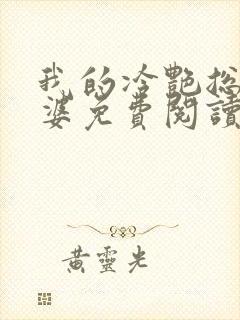 我的冷艷总
婆免費閱讀
黃靈光